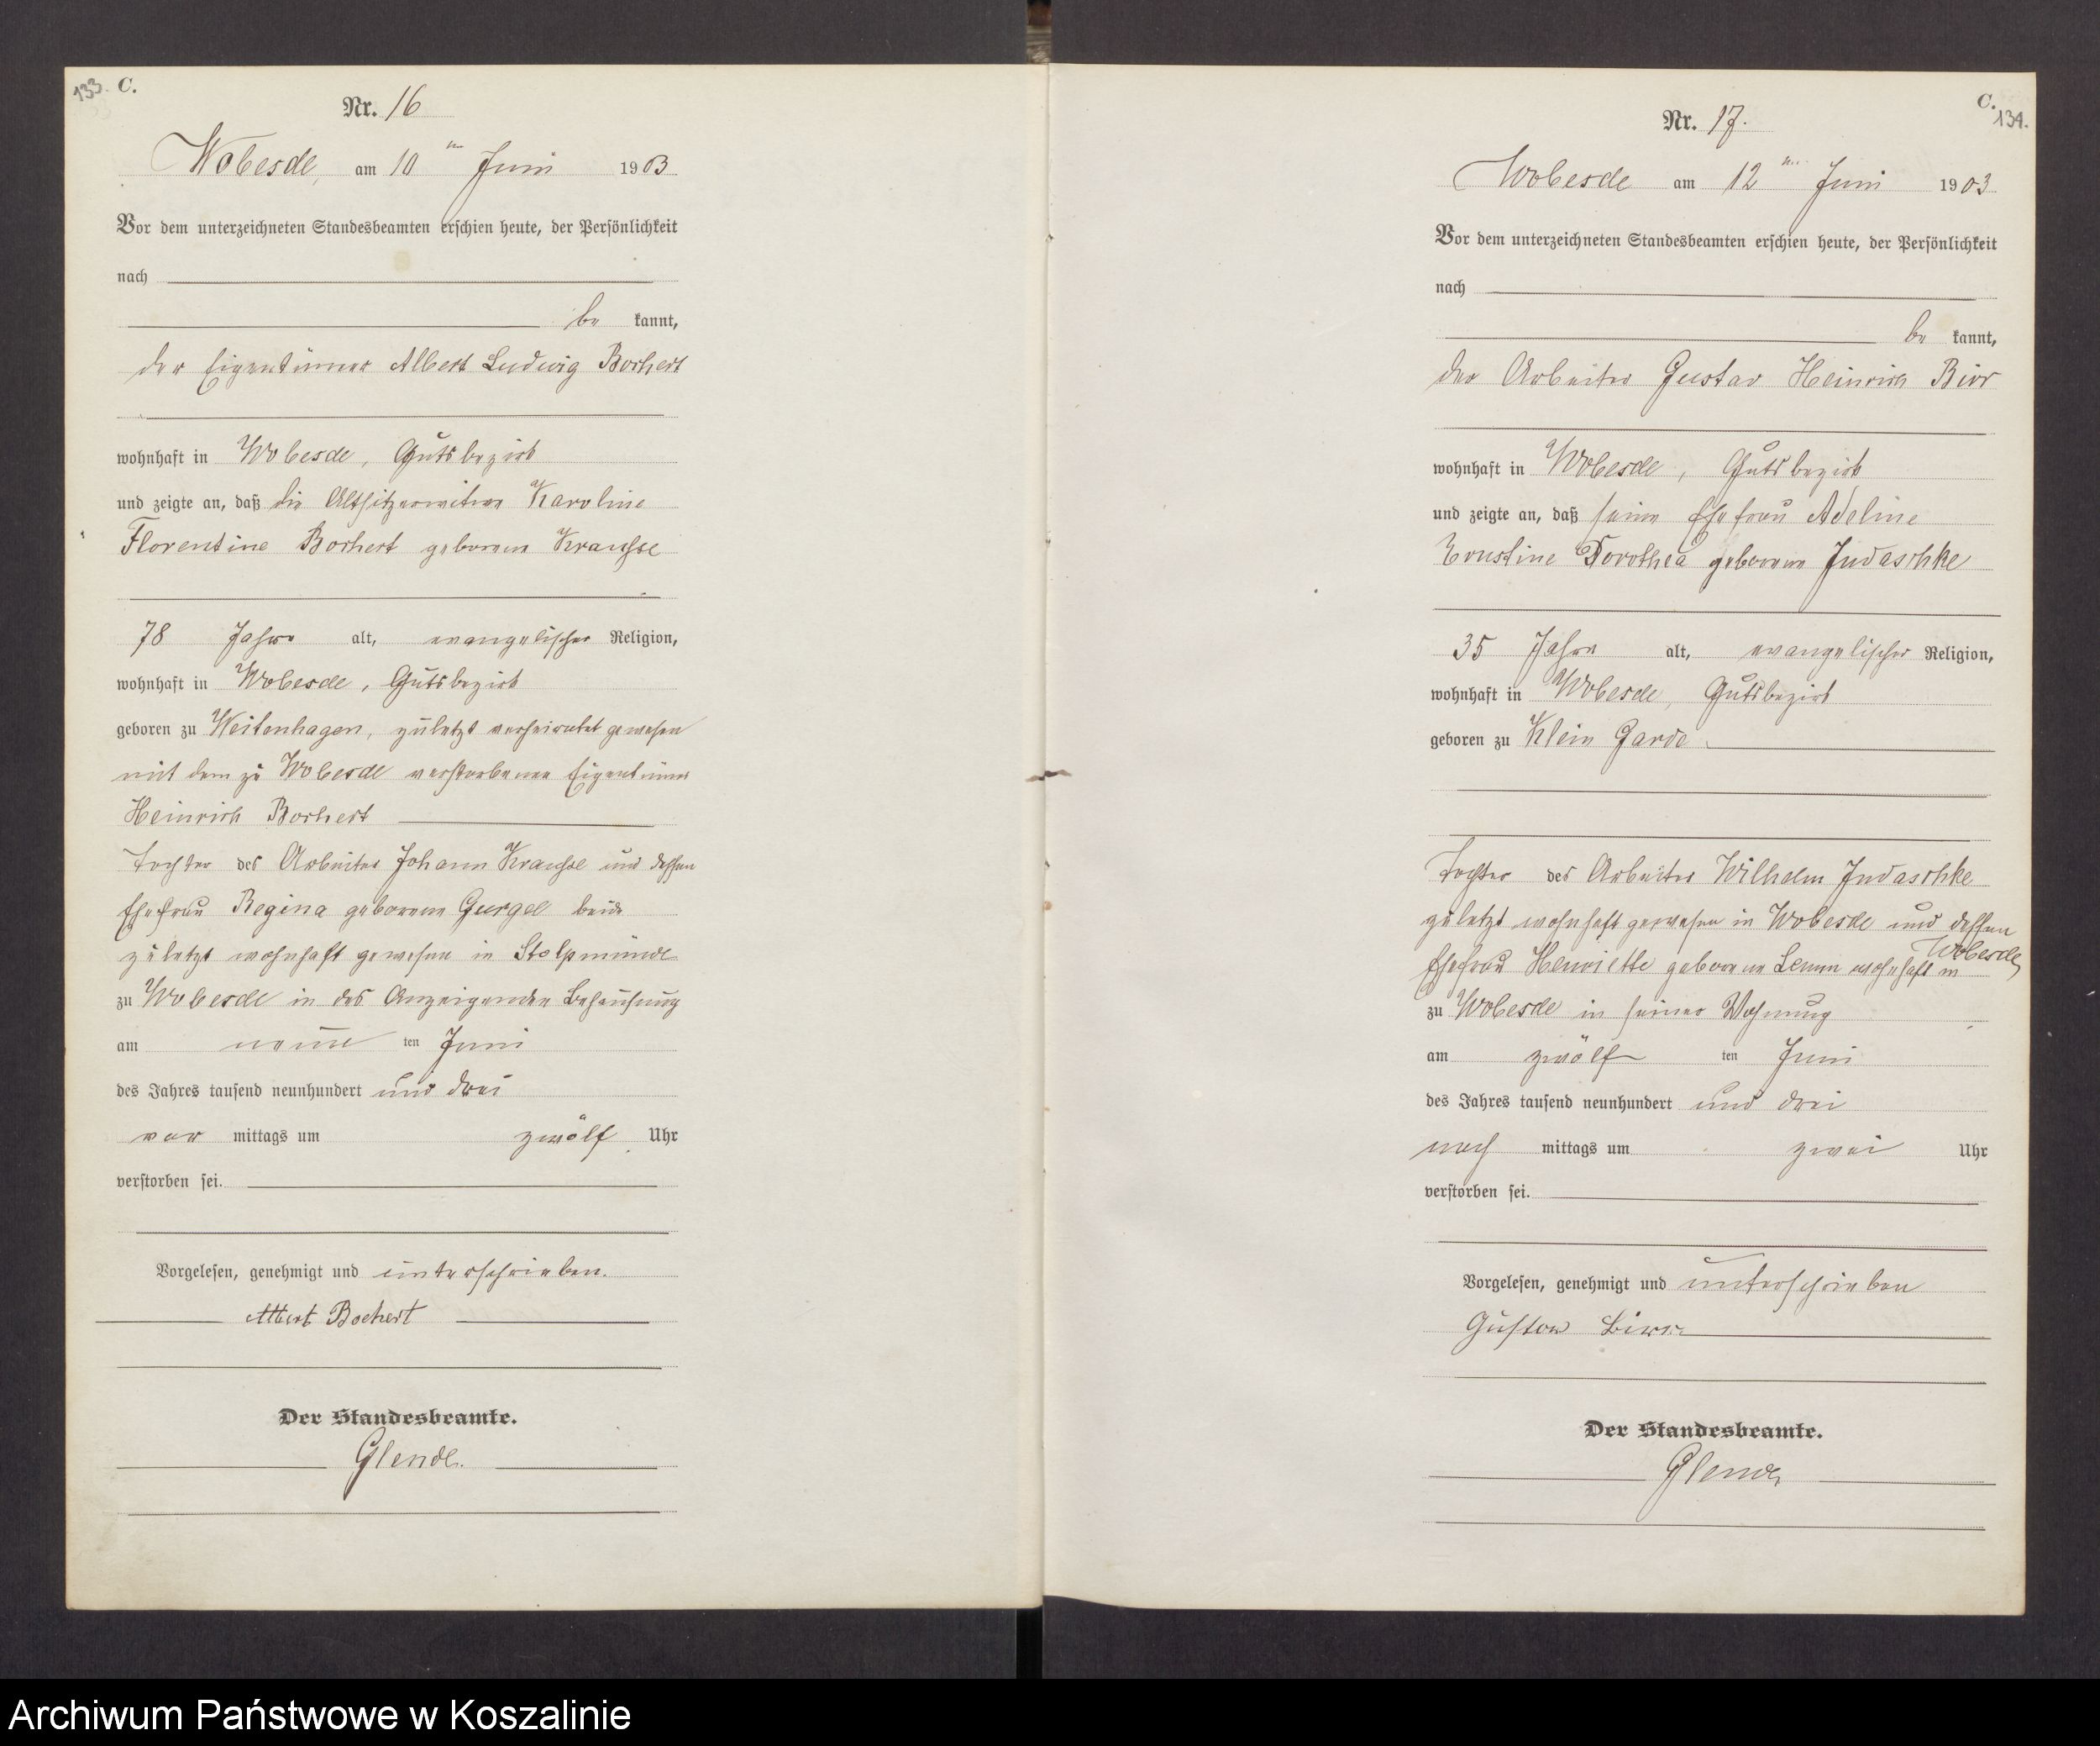 133. C.
Nr. 16
Wobesde, am 10ten Juni 1903
Vor dem unterzeichneten Standesbeamten erschien heute, der Persönlichkeit
nach
be kannt,
der Eigentümer Albert Ludwig Borhert
wohnhaft in Wobesde, Gutsbezirk
und zeigte an, daß die Altsitzerwitwe Karoline
Florentine Borhert geborene Krauhse
78 Jahre alt, evangelischer Religion,
wohnhaft in Wobesde, Gutsbezirk
geboren zu Weitenhagen, zuletzt verheirathet gewesen
mit dem zu Wobesde verstorbenen Eigentümer
Heinrich Borhert
Tochter des Arbeiter Johann Krauhse und dessen
Ehefrau Regina geborene Gurgel beide
zuletzt wohnhaft gewesen in Stolpmünde
zu Wobesde in des Anzeigenden Behausung
am neun ten Juni
des Jahres tausend neunhundert und drei
vor mittags um zwölf Uhr
verstorben sei.
Vorgelesen, genehmigt und unterschrieben.
Albert Bochert
Der Standesbeamte.
Glende.
C.
134.
Nr. 17.
Wobesde am 12ten Juni 1903
Vor dem unterzeichneten Standesbeamten erschien heute, der Persönlichkeit
nach
be kannt,
der Arbeiter Gustav Heinrich Birr
wohnhaft in Wobesde, Gutsbezirk
und zeigte an, daß seine Ehefrau Adeline
Ernstine Dorothea geborene Judaschke
35 Jahre alt, evangelischer Religion,
wohnhaft in Wobesde, Gutsbezirk
geboren zu Klein Garde
Tochter des Arbeiter Wilhelm Judaschke
zuletzt wohnhaft gewesen in Wobesde und dessen
Ehefrau Henriette geborene Lemm wohnhaft in Wobesde
zu Wobesde in seiner Wohnung
am zwölf ten Juni
des Jahres tausend neunhundert und drei
nach mittags um zwei Uhr
verstorben sei.
Vorgelesen, genehmigt und unterschrieben
Gustav Birr
Der Standesbeamte.
Glende
Archiwum Państwowe w Koszalinie